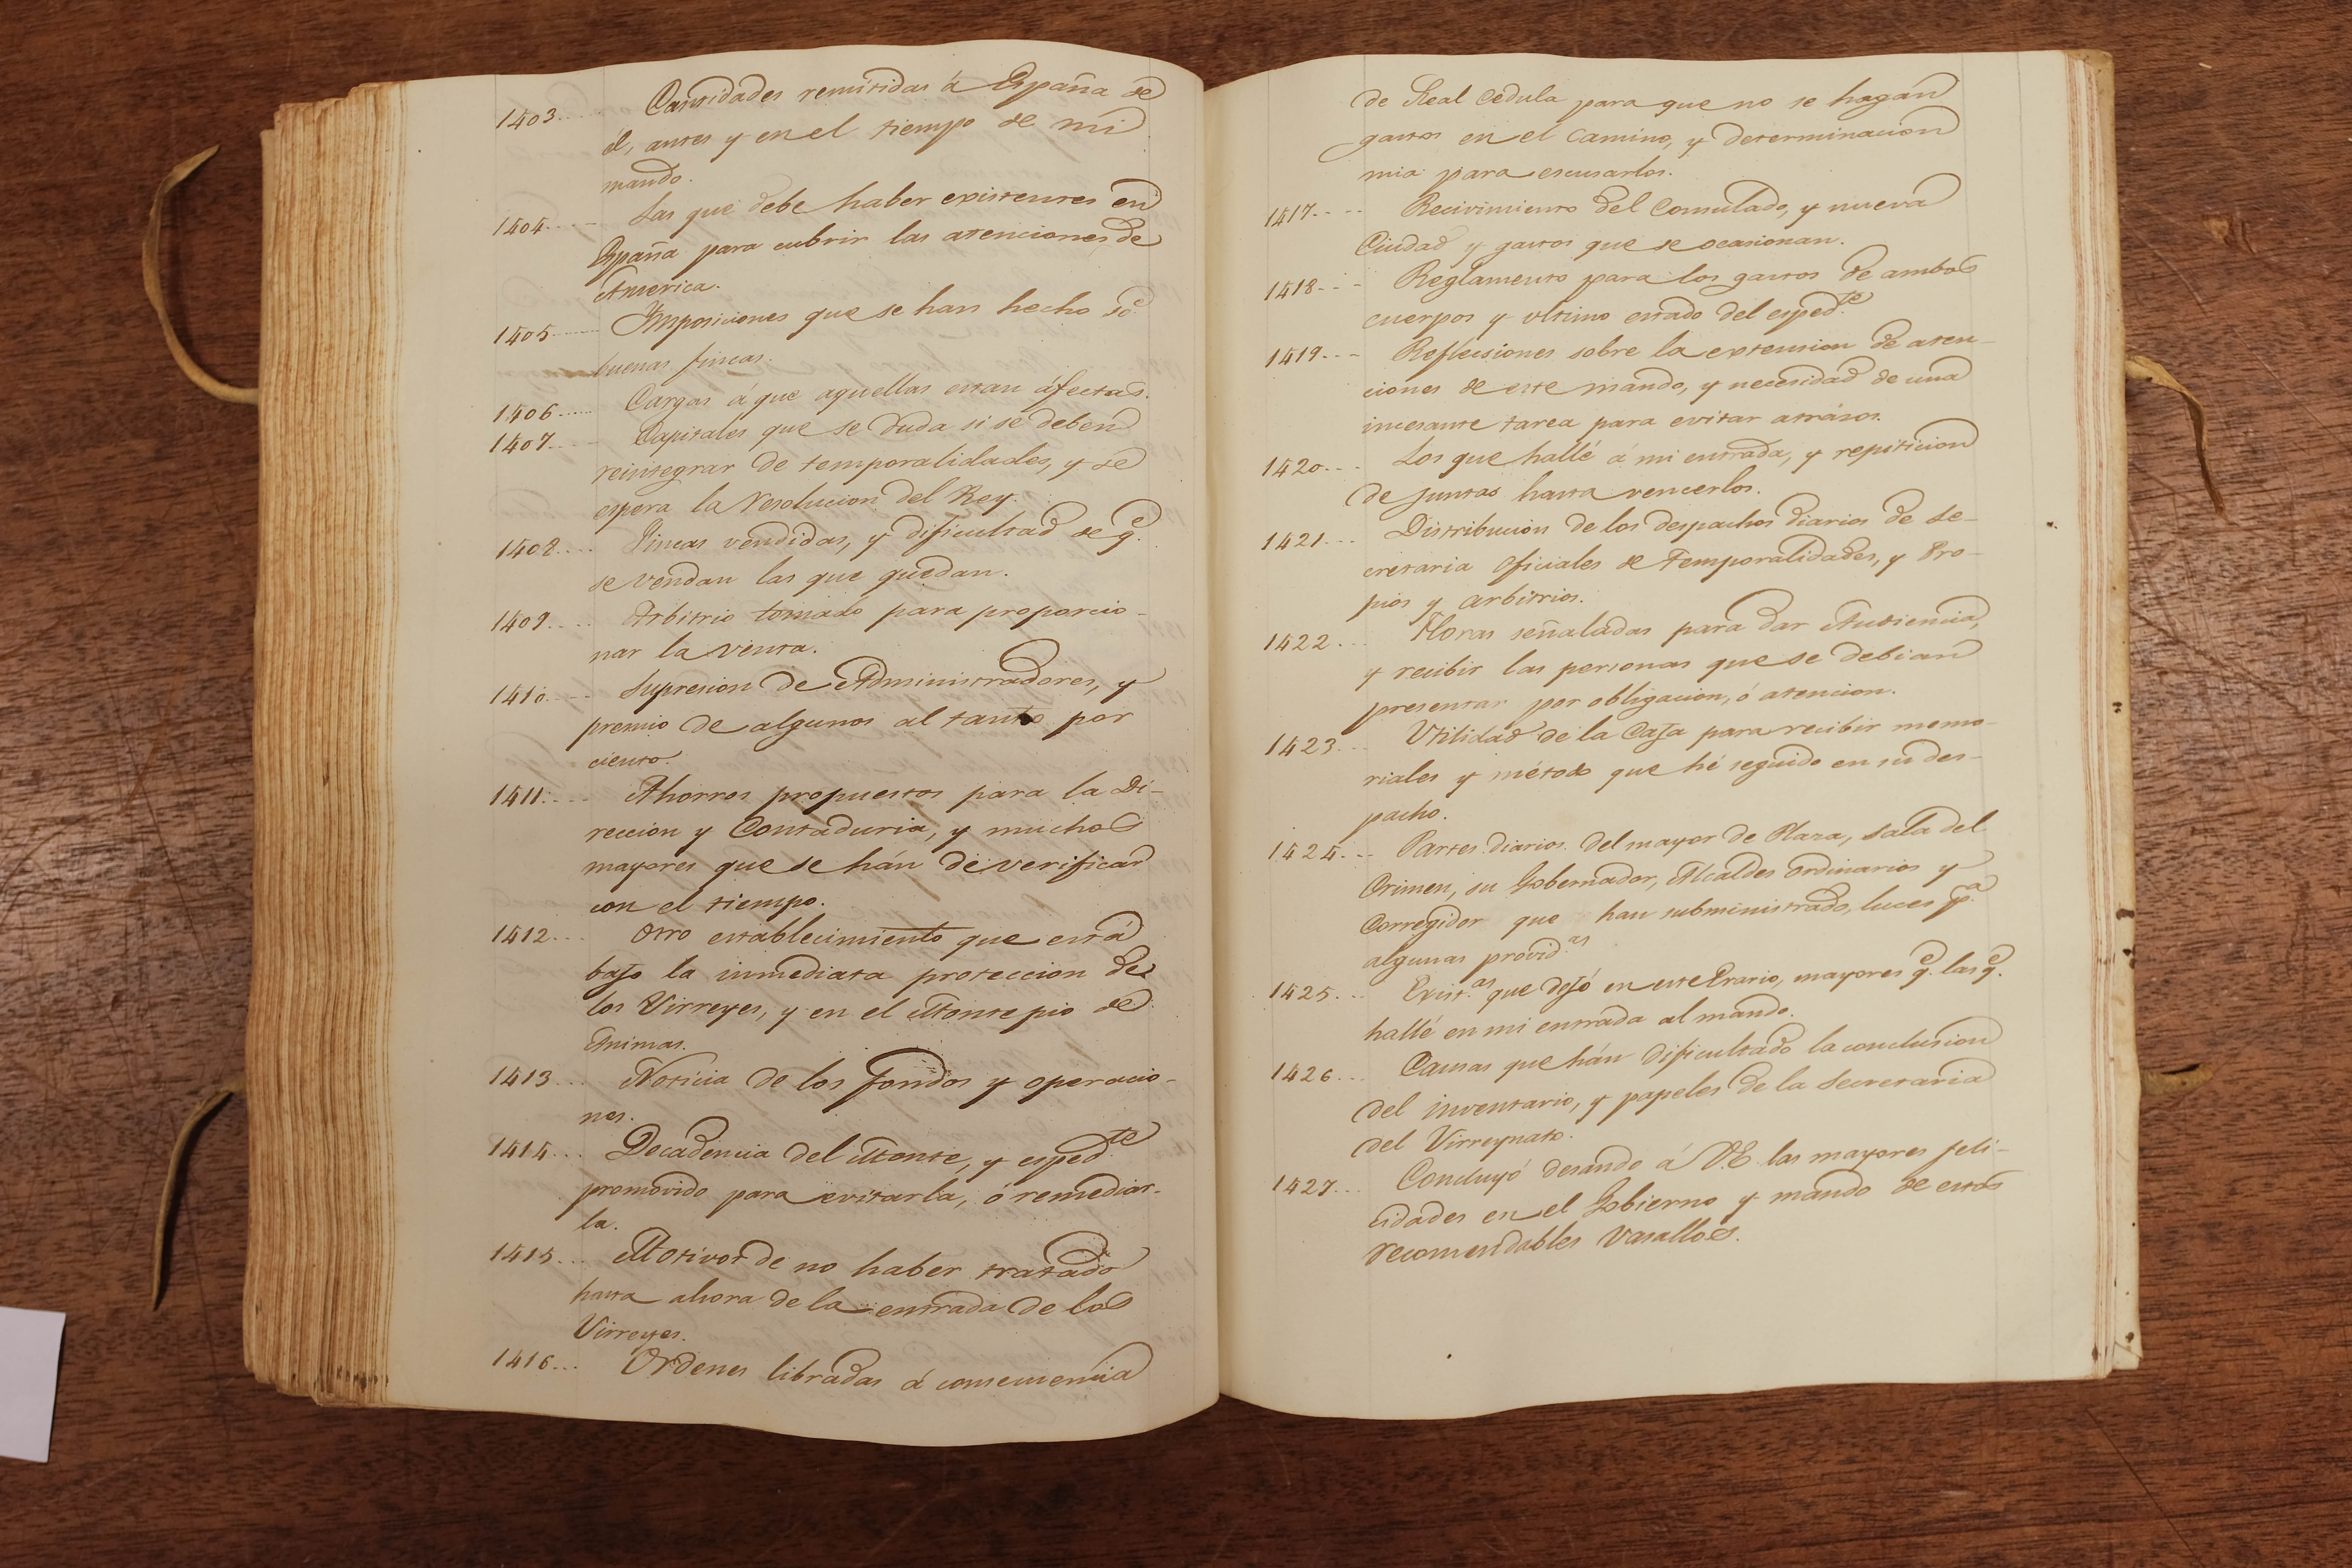 1403..... Cantidades remitidas á España de
él, antes y en el tiempo de mi
mando.
1404..... Las que debe haber existentes en
España para cubrir las atenciones, de
America.
1405..... Imposiciones que se han hecho sē
buenas fincas.
1406..... Cargas á que aquellas estan áfectas.
1407..... Capitales que se duda si se deben
reintegrar de temporalidades, y se
espera la resolucion del Rey.
1408.... Fincas vendidas, y dificultad de q.e
se vendan las que quedan.
1409.... Arbitrio tomado para proporcio-
nar la venta.
1410.... Supresion de Administradores, y
premio de algunos al tanto por
ciento.
1411.... Ahorros propuestos para la Di-
reccion y Contaduria, y muchos
mayores que se hán de verificar
con el tiempo.
1412... Otro establecimiento que está
bajo la inmediata proteccion de
los Virreyes, y en el Monte pio de
Animas.
1413... Noticia de los fondos y operacio-
nes.
1414... Decadencia del Monte, y esped.te
promovido para evitarla, ó remediar-
la.
1415... Motivos de no haber tratado
hasta ahora de la entrada de los
Virreyes.
1416... Ordenes libradas á consecuencia
de Real Cedula para que no se hagán
gastos en el camino, y determinacion
mia para escusarlos.
1417.... Recivimiento del Consulado, y nueva
Ciudad y gastos que se ocasionan.
1418... Reglamento para los gastos de ambos
cuerpos y ultimo estado del esped.te
1419... Reflecsiones sobre la extension de aten-
ciones de este mando, y necesidad de una
incesante tarea para evitar atrásos.
1420... Los que hallé á mi entrada, y repiticion
de juntas hasta vencerlos.
1421... Distribucion de los despachos diarios de Se-
cretaria Oficiales de Temporalidades, y Pro-
pios y arbitrios.
1422... Horas señaladas para dar Audiencia,
y recibir las personas que se debian
presentar por obligacion, ó atencion.
1423... Utilidad de la Caja para recibir memo-
riales y método que hé seguido en su des-
pacho.
1424... Partes diarios del mayor de Plaza, Sala del
Crimen, su Gobernador, Alcaldes ordinarios y
Corregidor que han subministrado, luces p.a
algunas provid.as
1425... Exist.as que dejó en este Erario, mayores q.e las q.e
hallé en mi entrada al mando.
1426... Causas que hán dificultado la conclusion
del inventario, y papeles de la Secretaria
del Virreynato.
1427... Concluyó deseando á V.E. las mayores feli-
cidades en el Gobierno y mando de estos
recomendables Vasallos.